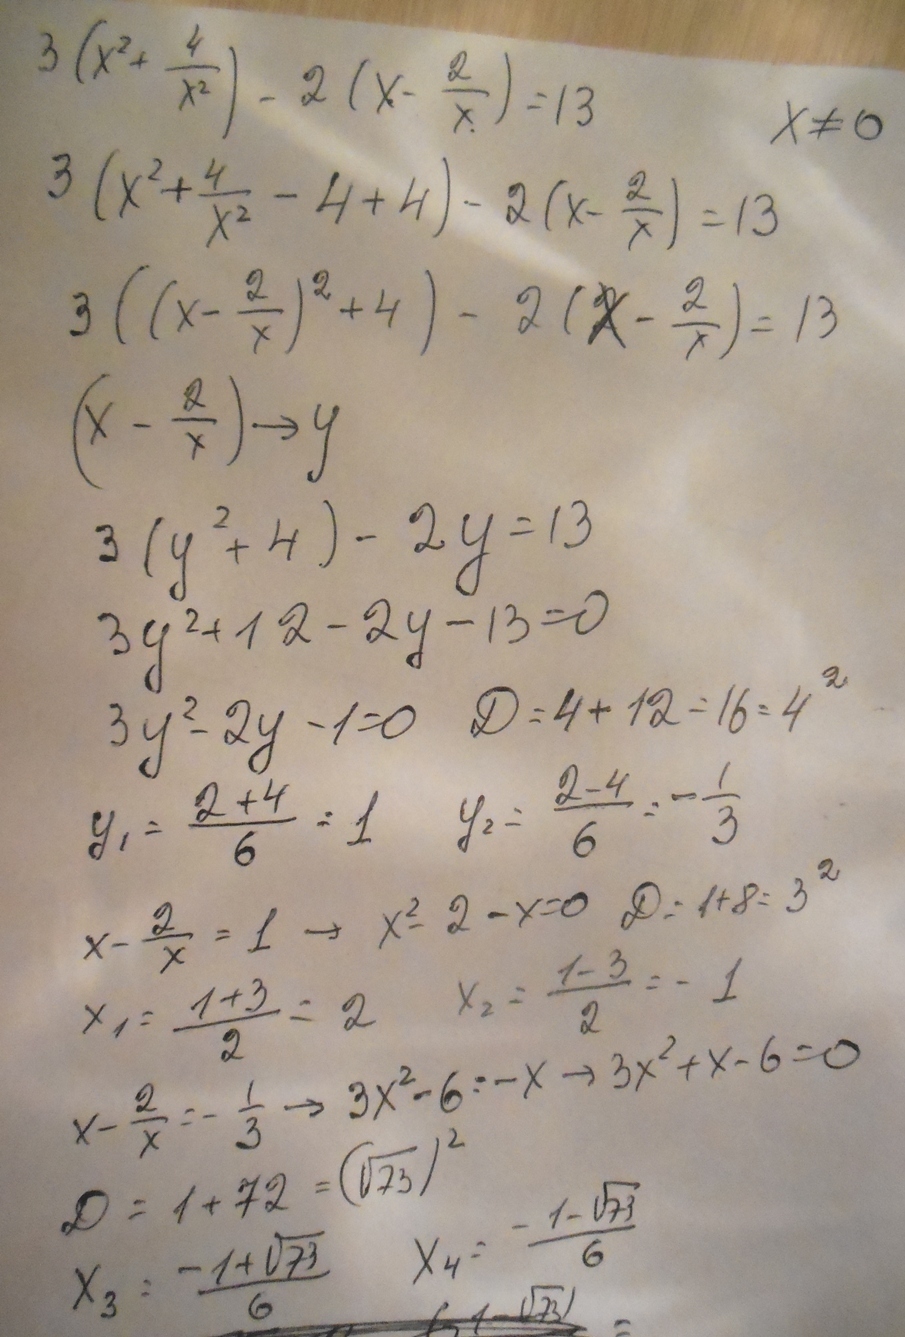 3(x² + 4/x²) - 2(x - 2/x) = 13 x ≠ 0
3(x² + 4/x² - 4 + 4) - 2(x - 2/x) = 13
3((x - 2/x)² + 4) - 2(x - 2/x) = 13
(x - 2/x) → y
3(y² + 4) - 2y = 13
3y² + 12 - 2y - 13 = 0
3y² - 2y - 1 = 0 D = 4 + 12 = 16 = 4²
y₁ = (2+4)/6 = 1 y₂ = (2-4)/6 = -1/3
x - 2/x = 1 → x² - 2 - x = 0 D = 1 + 8 = 3²
x₁ = (1+3)/2 = 2 x₂ = (1-3)/2 = -1
x - 2/x = -1/3 → 3x² - 6 = -x → 3x² + x - 6 = 0
D = 1 + 72 = (√73)²
x₃ = (-1+√73)/6 x₄ = (-1-√73)/6